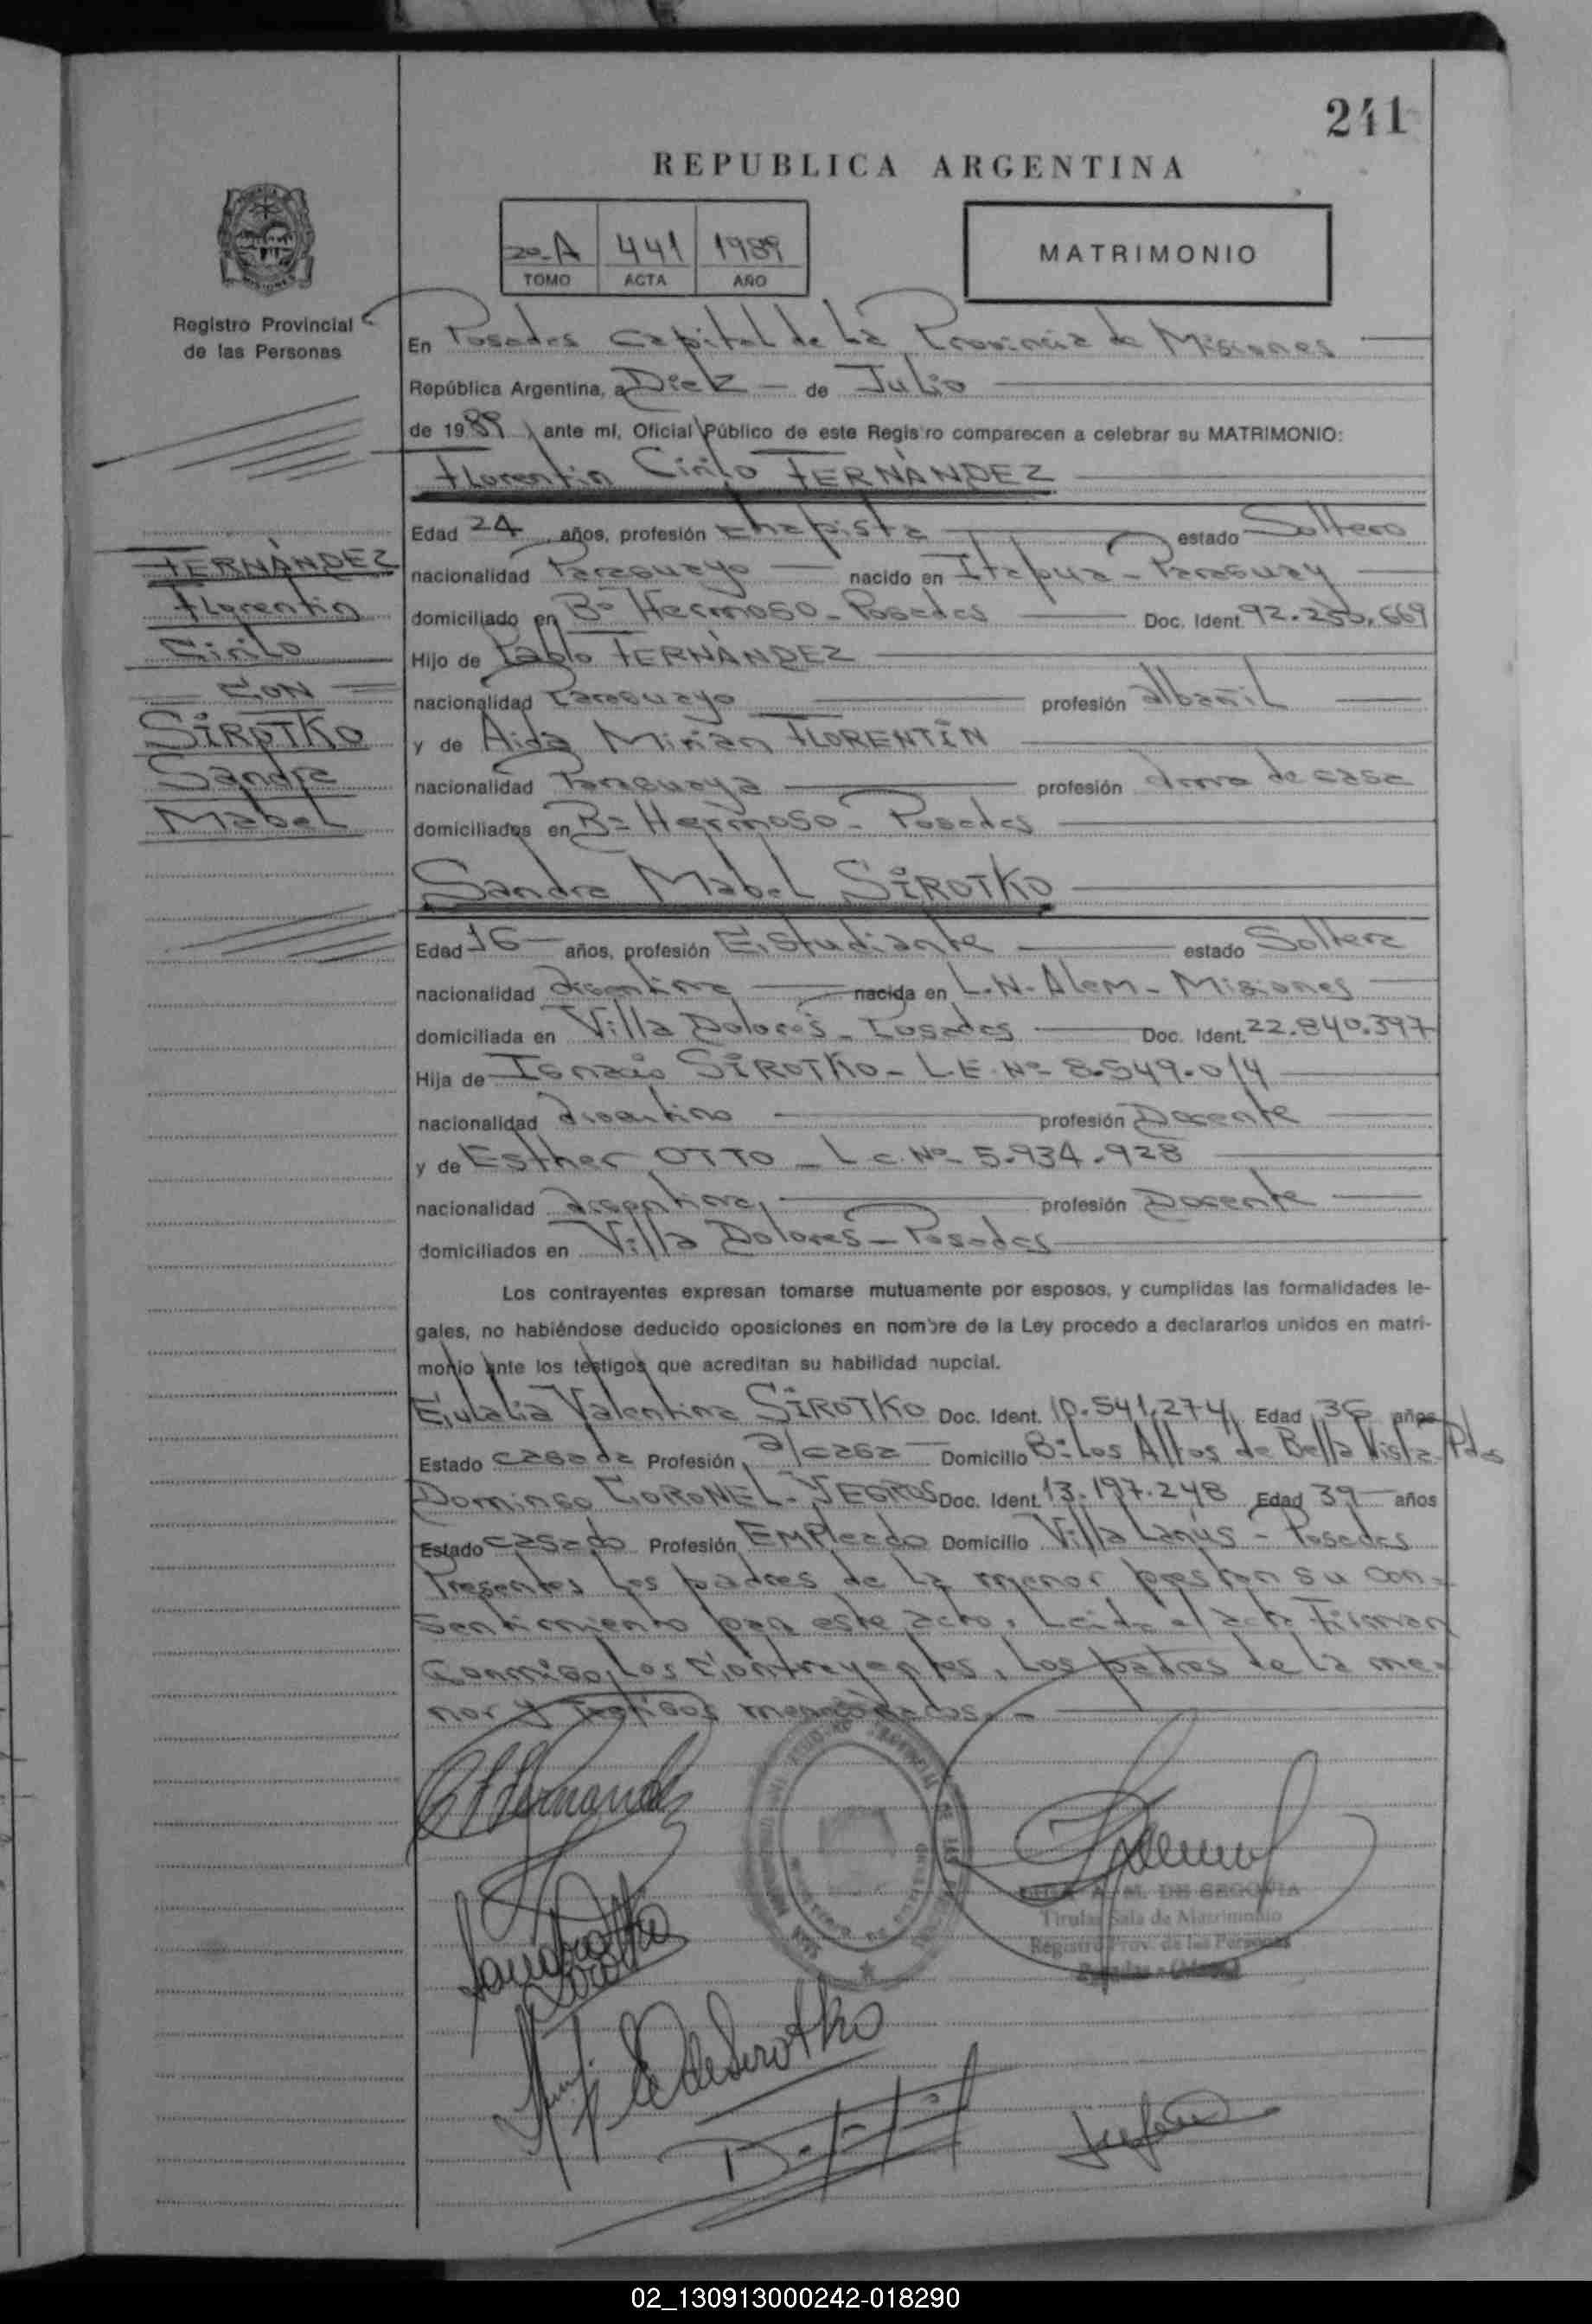 241
REPUBLICA ARGENTINA
20-A 441 1989
TOMO ACTA AÑO
MATRIMONIO
Registro Provincial
de las Personas
En Posadas Capital de La Provincia de Misiones
República Argentina, a Diez de Julio
de 1989, ante mí, Oficial Público de este Registro comparecen a celebrar su MATRIMONIO:
Florentin Cirilo FERNÁNDEZ
Edad 24 años, profesión chapista estado Soltero
nacionalidad Paraguayo nacido en Itapua - Paraguay
domiciliado en Bº Hermoso - Posadas Doc. Ident.
Hijo de Pablo FERNÁNDEZ
nacionalidad Paraguayo profesión albañil
y de Aida Mirian FLORENTÍN
nacionalidad Paraguaya profesión ama de casa
domiciliados en Bº Hermoso - Posadas
FERNÁNDEZ
Florentin
Cirilo
CON
SIROTKO
Sandra
Mabel
Sandra Mabel SIROTKO
Edad 16 años, profesión Estudiante estado Soltera
nacionalidad argentina nacida en L.N. Alem - Misiones
domiciliada en Villa Dolores - Posadas Doc. Ident. 22.840.397
Hija de Ignacio SIROTKO - L.E. Nº 8.549.014
nacionalidad argentino profesión Docente
y de Esther OTTO - L.C. Nº 5.934.928
nacionalidad argentina profesión Docente
domiciliados en Villa Dolores - Posadas
Los contrayentes expresan tomarse mutuamente por esposos, y cumplidas las formalidades le-
gales, no habiéndose deducido oposiciones en nombre de la Ley procedo a declararlos unidos en matri-
monio ante los testigos que acreditan su habilidad nupcial.
Eulalia Valentina SIROTKO Doc. Ident. 10.541.274 Edad 36 años
Estado casada Profesión a/casa Domicilio Bº Los Altos de Bella Vista - Pdas
Domingo CORONEL - YEGROS Doc. Ident. 13.197.248 Edad 39 años
Estado casado Profesión Empleado Domicilio Villa Lanús - Posadas
Presentes los padres de la menor prestan su con-
sentimiento para este acto. Leida el acta Firman
Conmigo, Los Contrayentes, Los padres de la me-
nor y testigos mencionados. -
A. M. DE SEGOVIA
Titular Sala de Matrimonio
Registro Prov. de las Personas
02_130913000242-018290